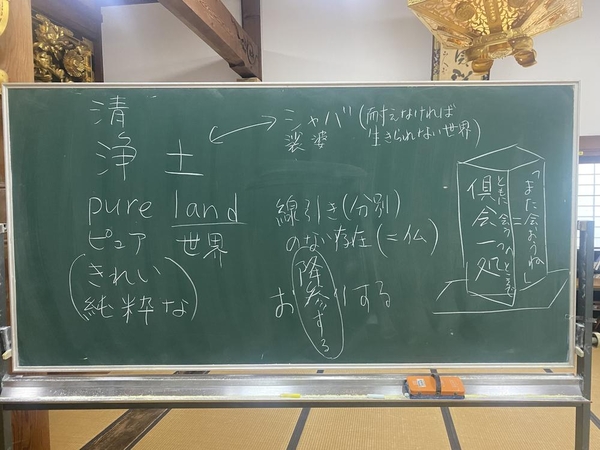 清
浄土
pure land
ピュア 世界
(きれい
純粋な)
シャバ(耐えなければ
裟婆 生きられない世界)
線引き(分別)
のない存在(=仏)
降
お参りする
する
「また会おうね」
=
ともに会う
倶会一処